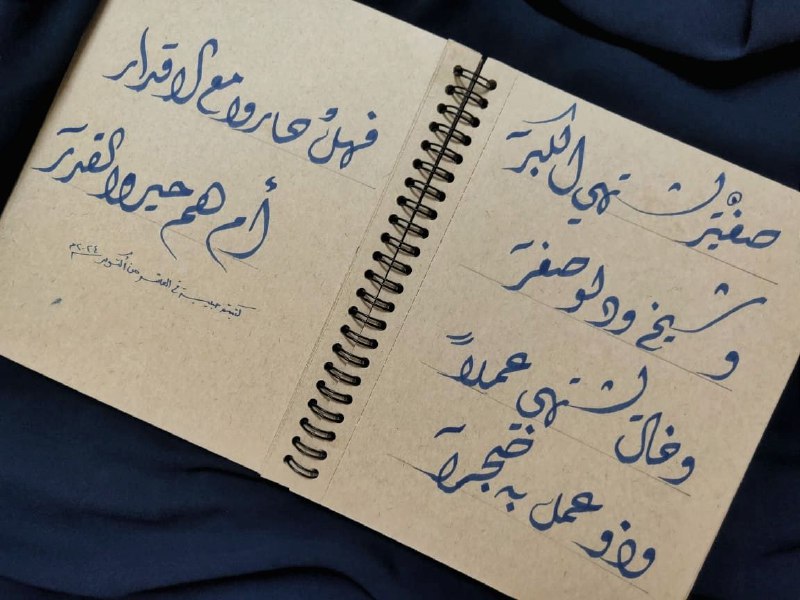 صغير يشتهي الكبرا
وشيخ ود لو صغرا
وخال يشتهي عملاً
وذو عمل به ضجرا
فهل حاروا مع الاقدار
أم هم حيروا القدرا
كتبته حبيبة في العاشر من أكتوبر ٢٠٢٤م